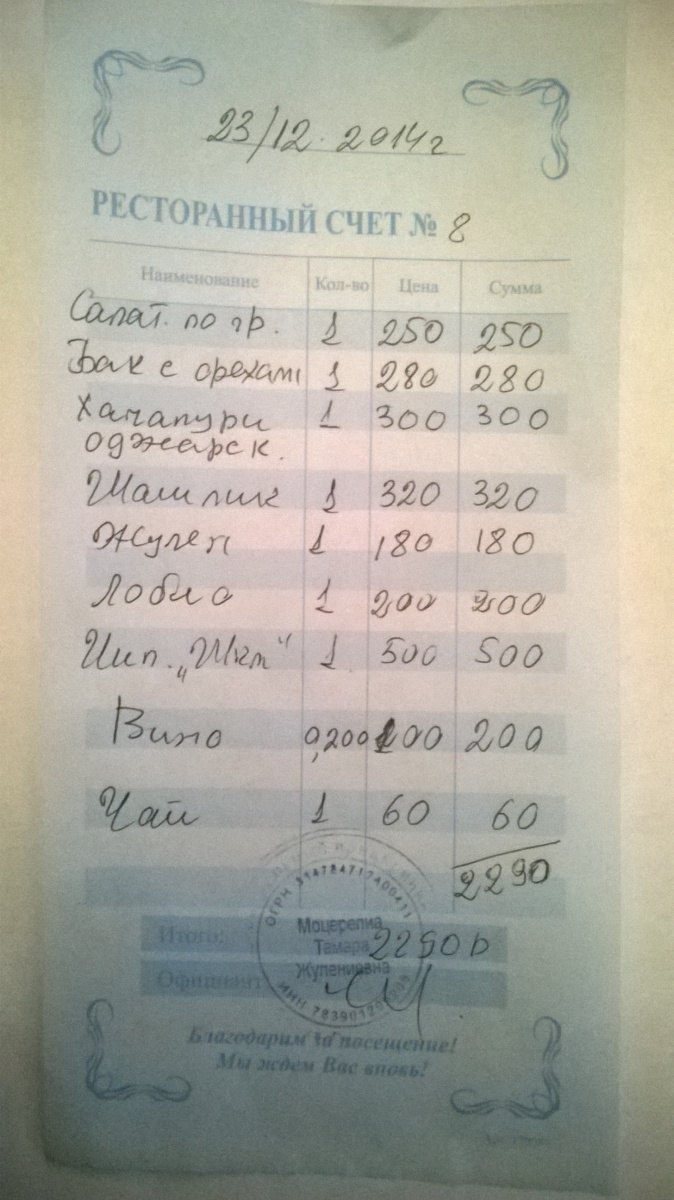 23/12.2014г
РЕСТОРАННЫЙ СЧЕТ № 8
Наименование Кол-во Цена Сумма
Салат. по гр. 1 250 250
Бак с орехами 1 280 280
Хачапури 1 300 300
оджарск.
Шашлик 1 320 320
Жулен 1 180 180
Лобио 1 200 200
1 500 500
Вино 0,200 200
Чай 1 60 60
2290
Итого: 2290 р
Официант
ОГРН
Моцерелиа
Тамара
Жулениевна
ИНН
Благодарим за посещение!
Мы ждем Вас вновь!